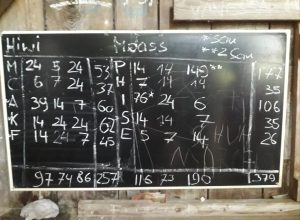 Hiwi Molass *5cm
**25cm
M 24 5 24 53 P 14 14 149** 177
C 6 7 24 37 H 7 14 14 35
*A 39 14 7 60 I 76* 24 6 106
*K 14 24 24 62 S 14 14 7 35
F 14 24 7 45 E 5 7 14 26
97 74 86 257 116 73 190 1379